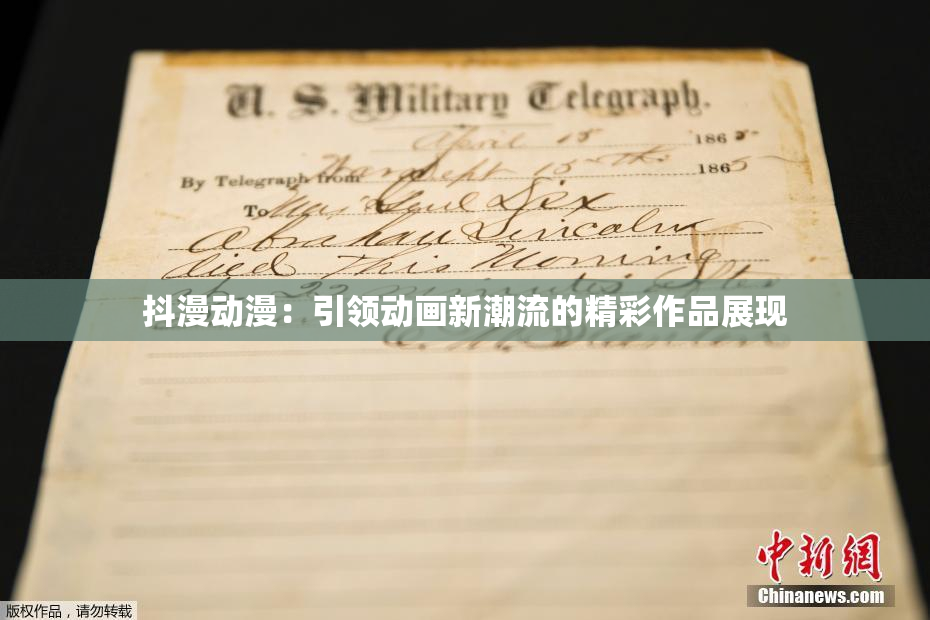 U. S. Military Telegraph.
April 15 1865
By Telegraph from War Dept 15th 1865
To Maj Genl Dix
Abraham Lincoln
died This Morning
at 22 minutes after
抖漫动漫：引领动画新潮流的精彩作品展现
E. M. Stanton
中新网
Chinanews.com
版权作品，请勿转载